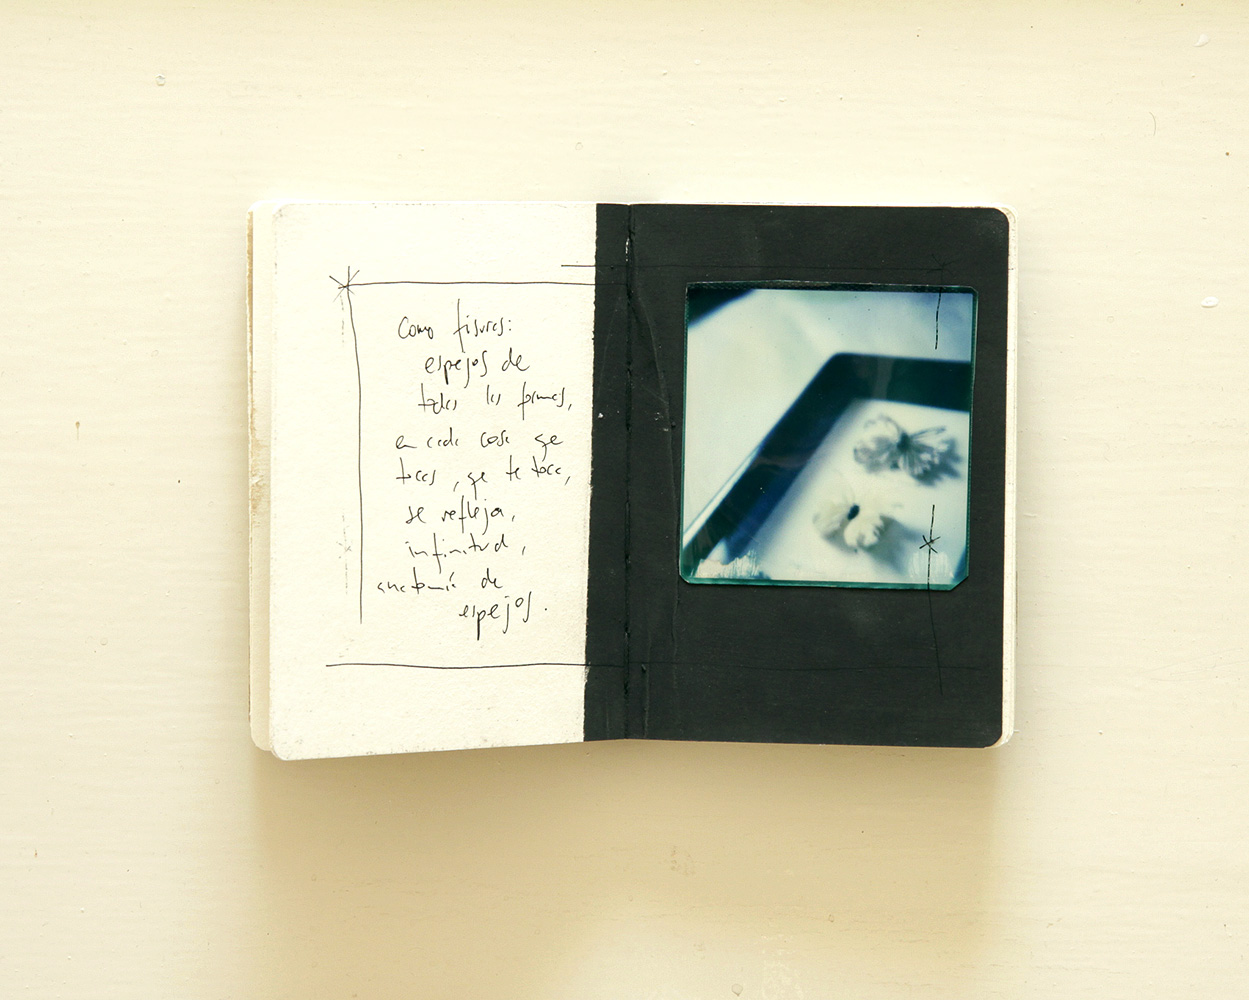 Como figuras:
espejos de
todas las formas,
en cada cosa que
tocas, que te toca,
se refleja,
infinitud,
anatomía de
espejos.